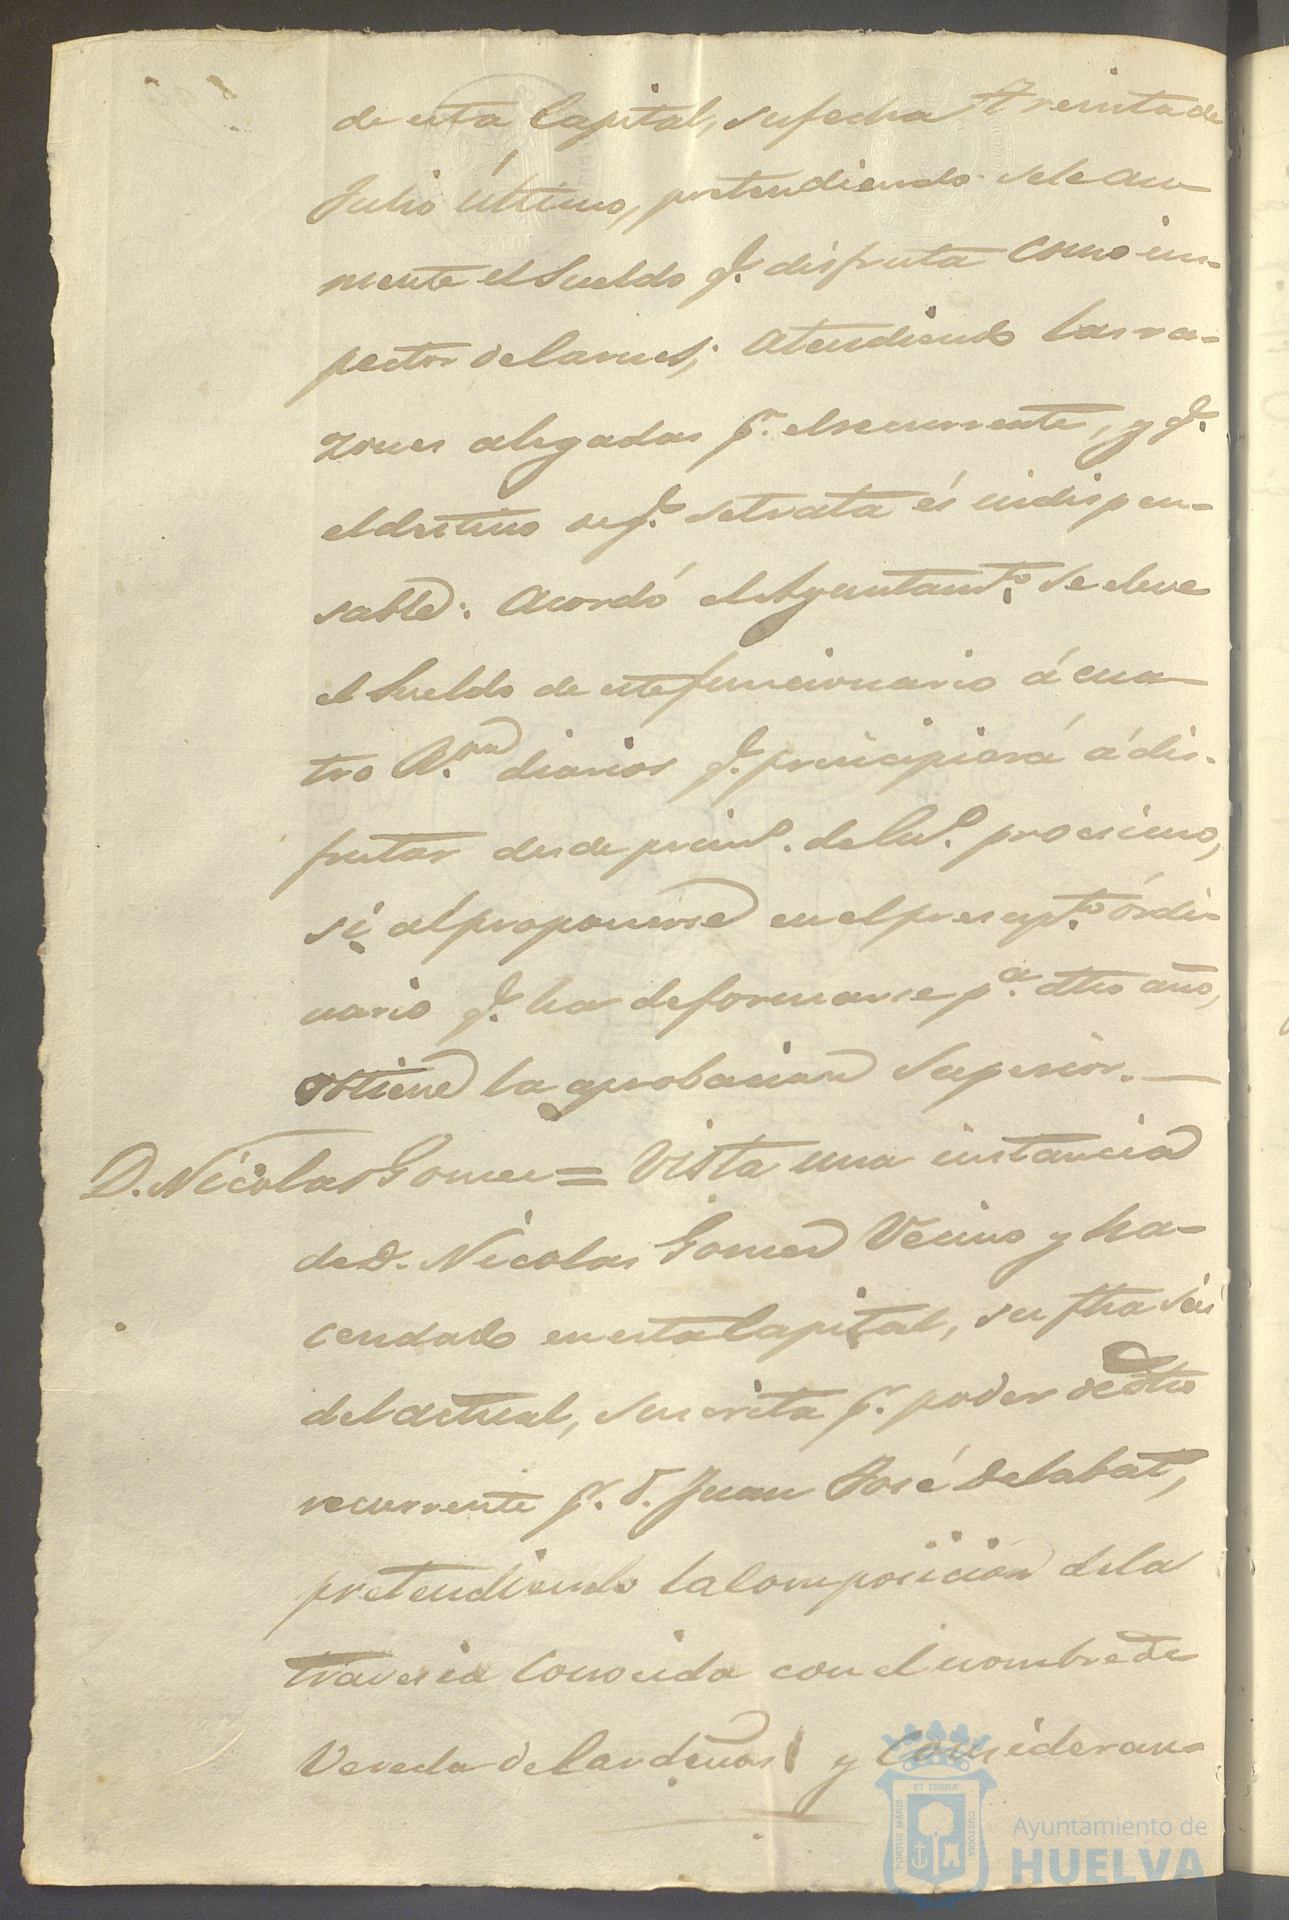 de esta Capital, su fecha Treinta de
Julio último, pretendiendo se le au-
mente el Sueldo q.e disfruta como ins-
pector de Carnes; atendiendo las ra-
zones alegadas p.r el recurrente, y q.e
el destino de q.e se trata és indispen-
sable: Acordó el Ayuntam.to se eleve
el Sueldo de este funcionario á cua-
tro R.s diarios q.e principiará á dis-
frutar desde prim.o de En.o procsimo,
si al proponerse en el presup.to órdi-
nario q.e ha de formarse p.a dho año,
obtiene la aprobacion Superior.
D. Nicolas Gomez = Vista una instancia
de D. Nicolas Gomez Vecino y ha-
cendado en esta Capital, su fha seis
del actual, suscrita p.r poder de dho
recurrente p.r D. Juan José Delabat,
pretendiendo la Composicion de la
travesia Conocida con el nombre de
Vereda de Cardeñas y Consideran-
PORTUS MARIS
ET TERRÆ
CUSTODIA
Ayuntamiento de
HUELVA